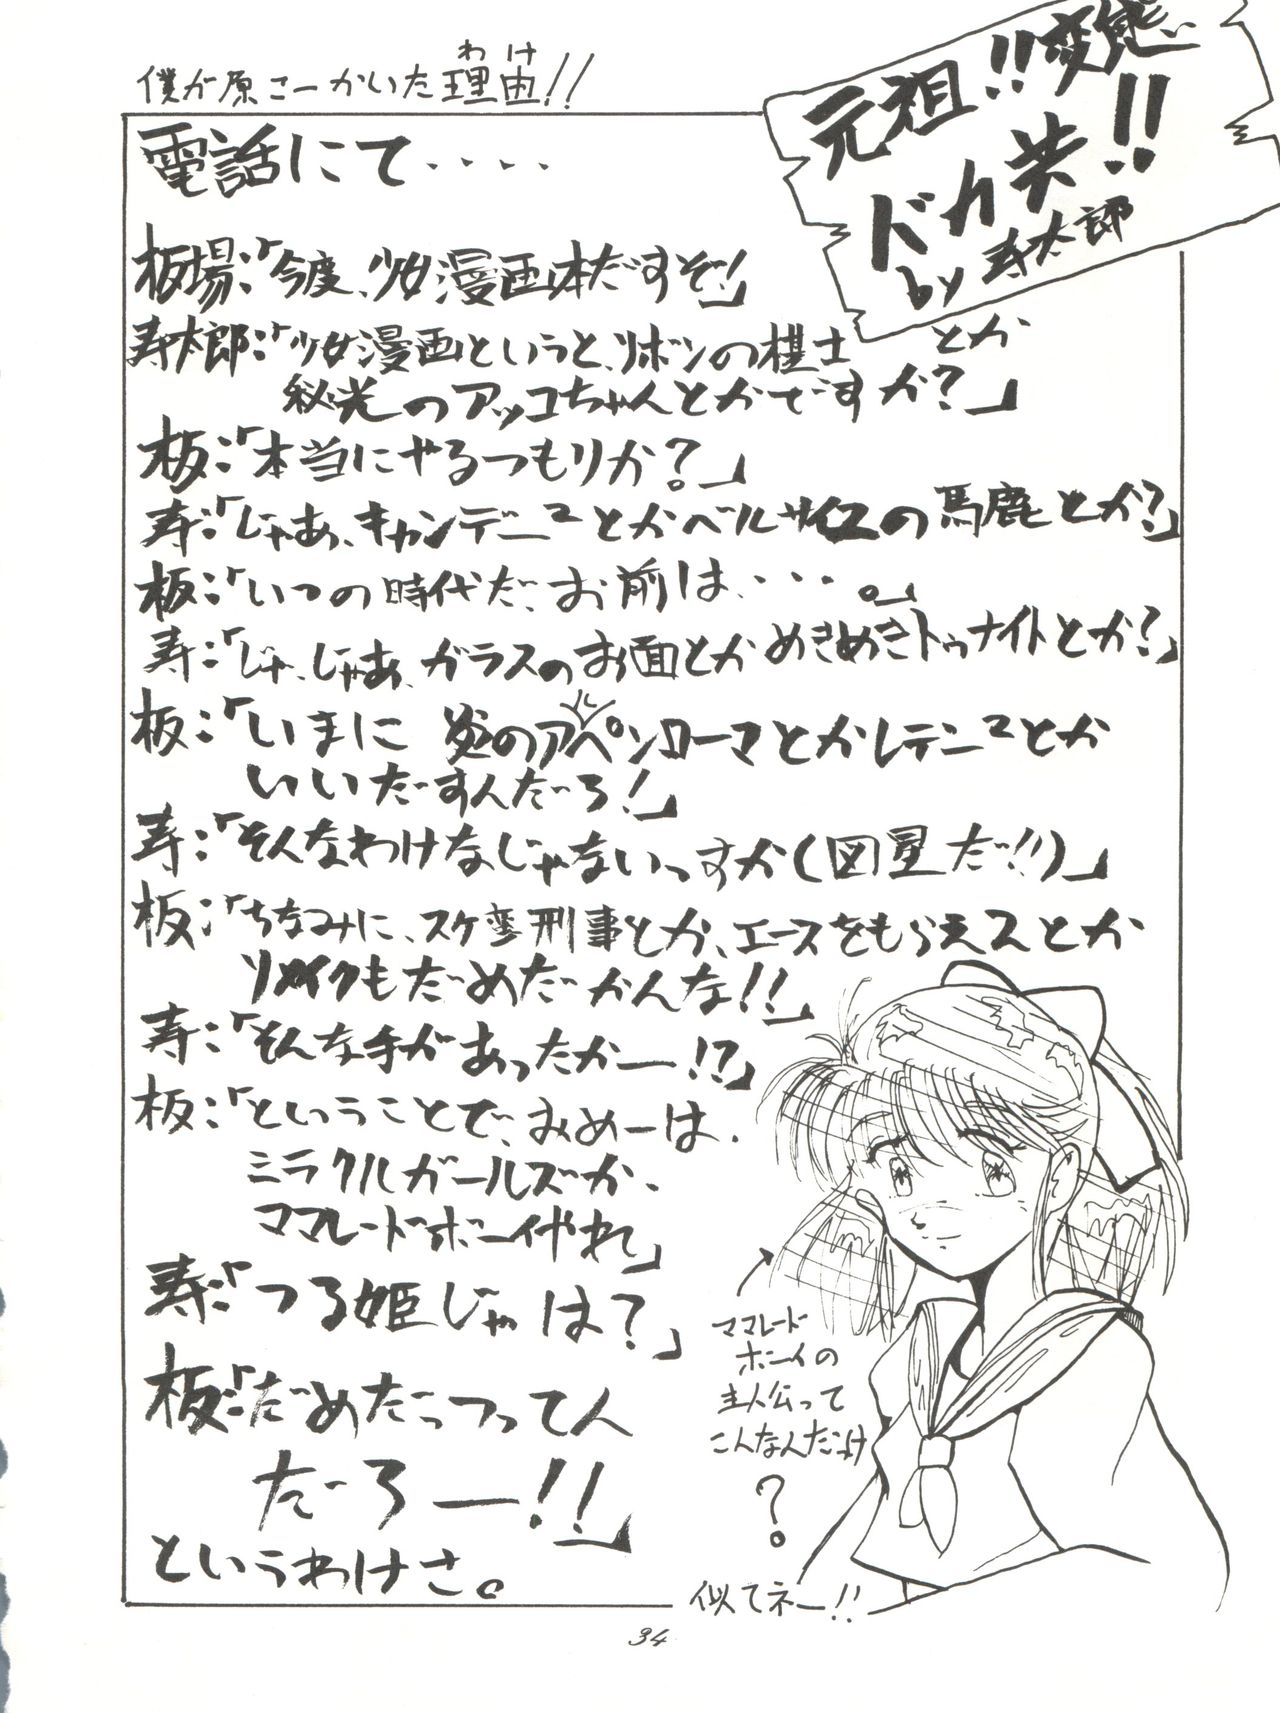 元祖!!変態
ドカ共!!
by 寿太郎
僕が原さーかいた理由!!
わけ
電話にて・・・・
板場:「今度、少女漫画本だすぞ!」
寿太郎:「少女漫画というと、リボンの棋士とか
秘光のアッコちゃんとかですか?」
板:「本当にやるつもりか?。」
寿:「じゃあ、キャンデニ²とかベルサイユの馬鹿とか?」
板:「いつの時代だ、お前は・・・。」
寿:「じゃ、じゃあ、ガラスのお面とかめきめきトゥナイトとか?」
板:「いまに 炎のアルペンローマとかレテニ²とか
いいだすんだろ!」
寿:「そんなわけなじゃないっすか(図星だ!!)」
板:「ちなみに、スケ番刑事とか、エースをもらえ2とか
リメイクもだめだかんな!!」
寿:「そんな手があったかー!?」
板:「ということで、おめーは、
ミラクルガールズか、
ママレードボーイやれ」
寿:「つる姫じゃは?」
板:「だめだっつってん
だろー!!」
というわけさ。
ママレード
ボーイの
主人公って
こんなんだっけ
?
似てネー!!
34